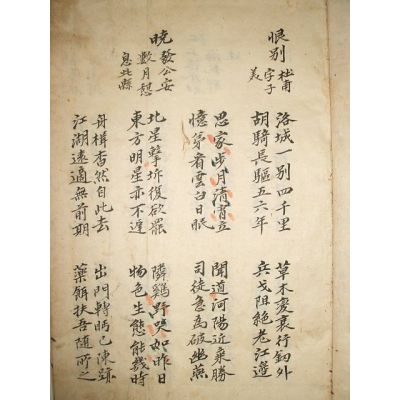 恨別
杜甫
字子
美
洛城一別四千里
胡騎長驅五六年
草木变衰行釖外
兵戈阻絕老江邊
思家步月清宵立
憶弟看雲白日眠
聞道河陽近乘勝
司徒急為破幽燕
曉發公安
數月憩
息此縣
北星擊柝復欲罷
東方明星亦不遲
隣鷄野哭如昨日
物色生態能幾時
舟楫杳然自此去
江湖遠適無前期
出門轉眄已陳跡
藥餌扶吾隨所之